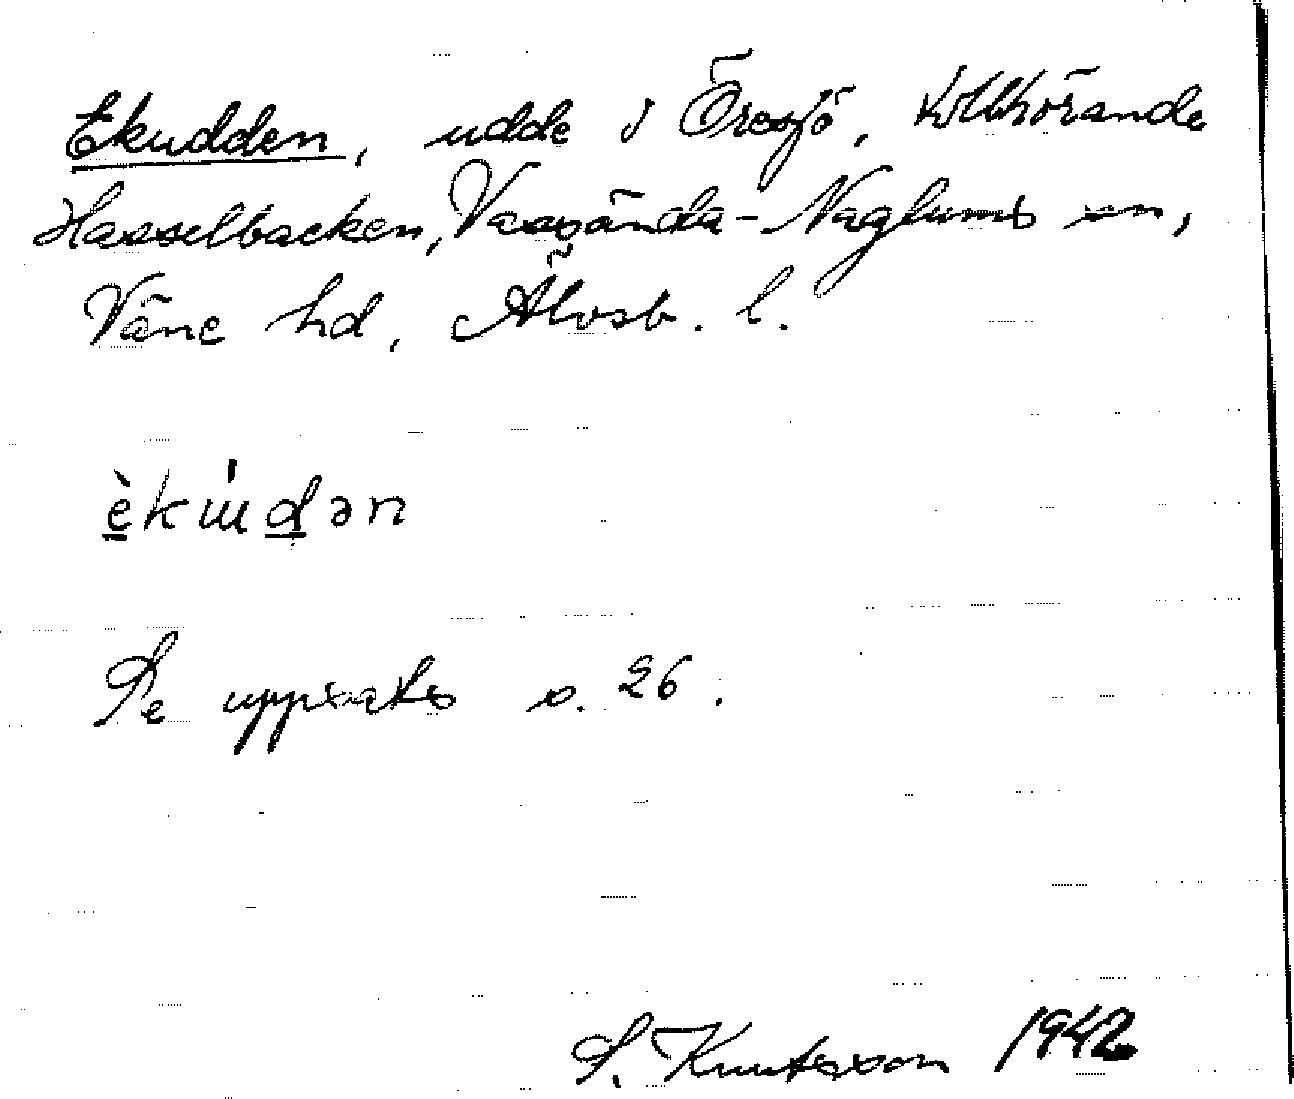 Ekudden, udde i Öresjö, tillhörande
Hasselbacken, Vassända-Naglums sn,
Väne hd, Älvsb. l.
èkɯ́dən
Se uppsats s. 26.
S. Knutsson 1942